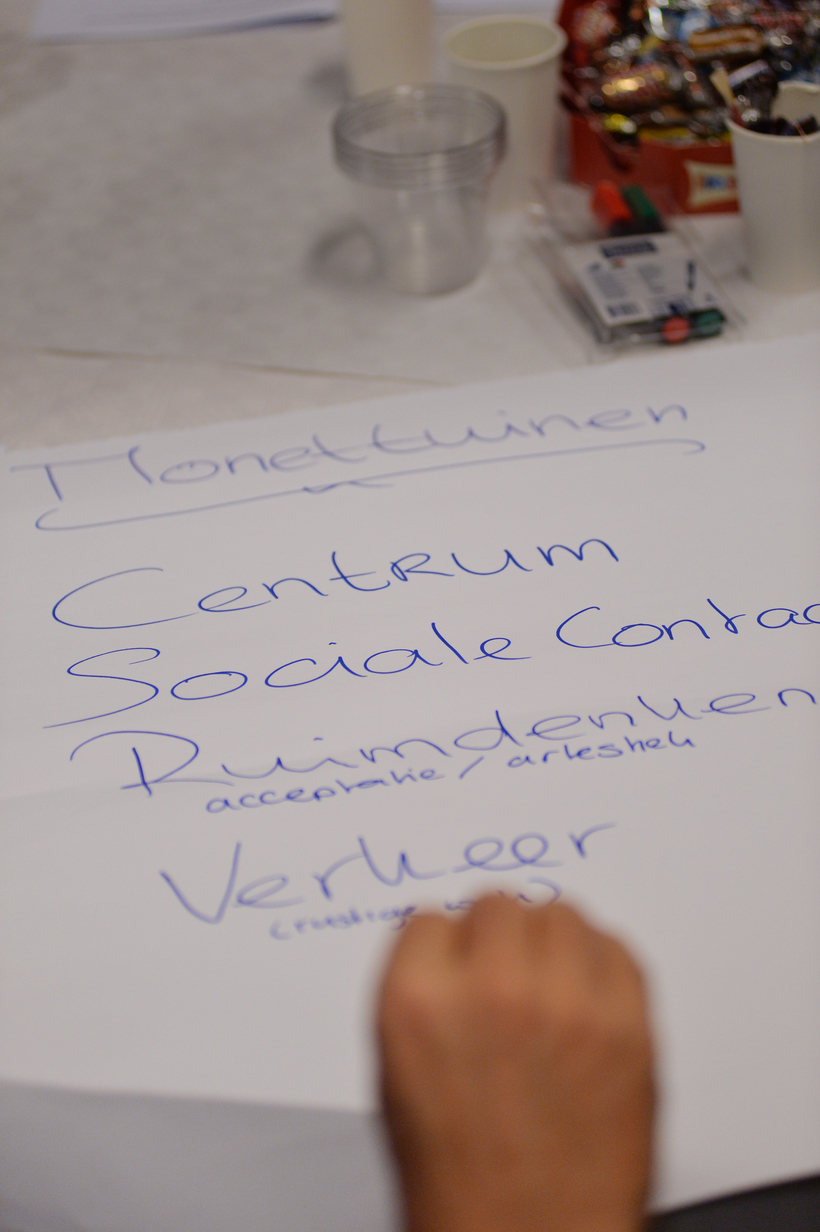 Monettuinen
Centrum
Sociale Contac
Ruimdenken
acceptatie /
Verkeer
(rustige